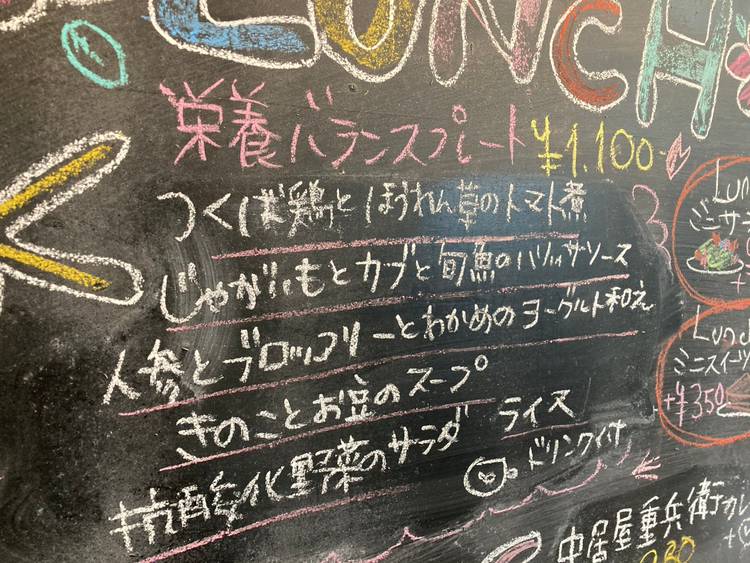 LUNCH
栄養バランスプレート ¥1.100
つくば鶏とほうれん草のトマト煮
じゃがいもとカブと旬魚のハリッサソース
人参とブロッコリーとわかめのヨーグルト和え
きのことお豆のスープ
ライス
抗酸化野菜のサラダ
ドリンク付
Lun
ミニサラ
Lunc
ミニスイーツ
+¥350
中居屋重兵衛カレ